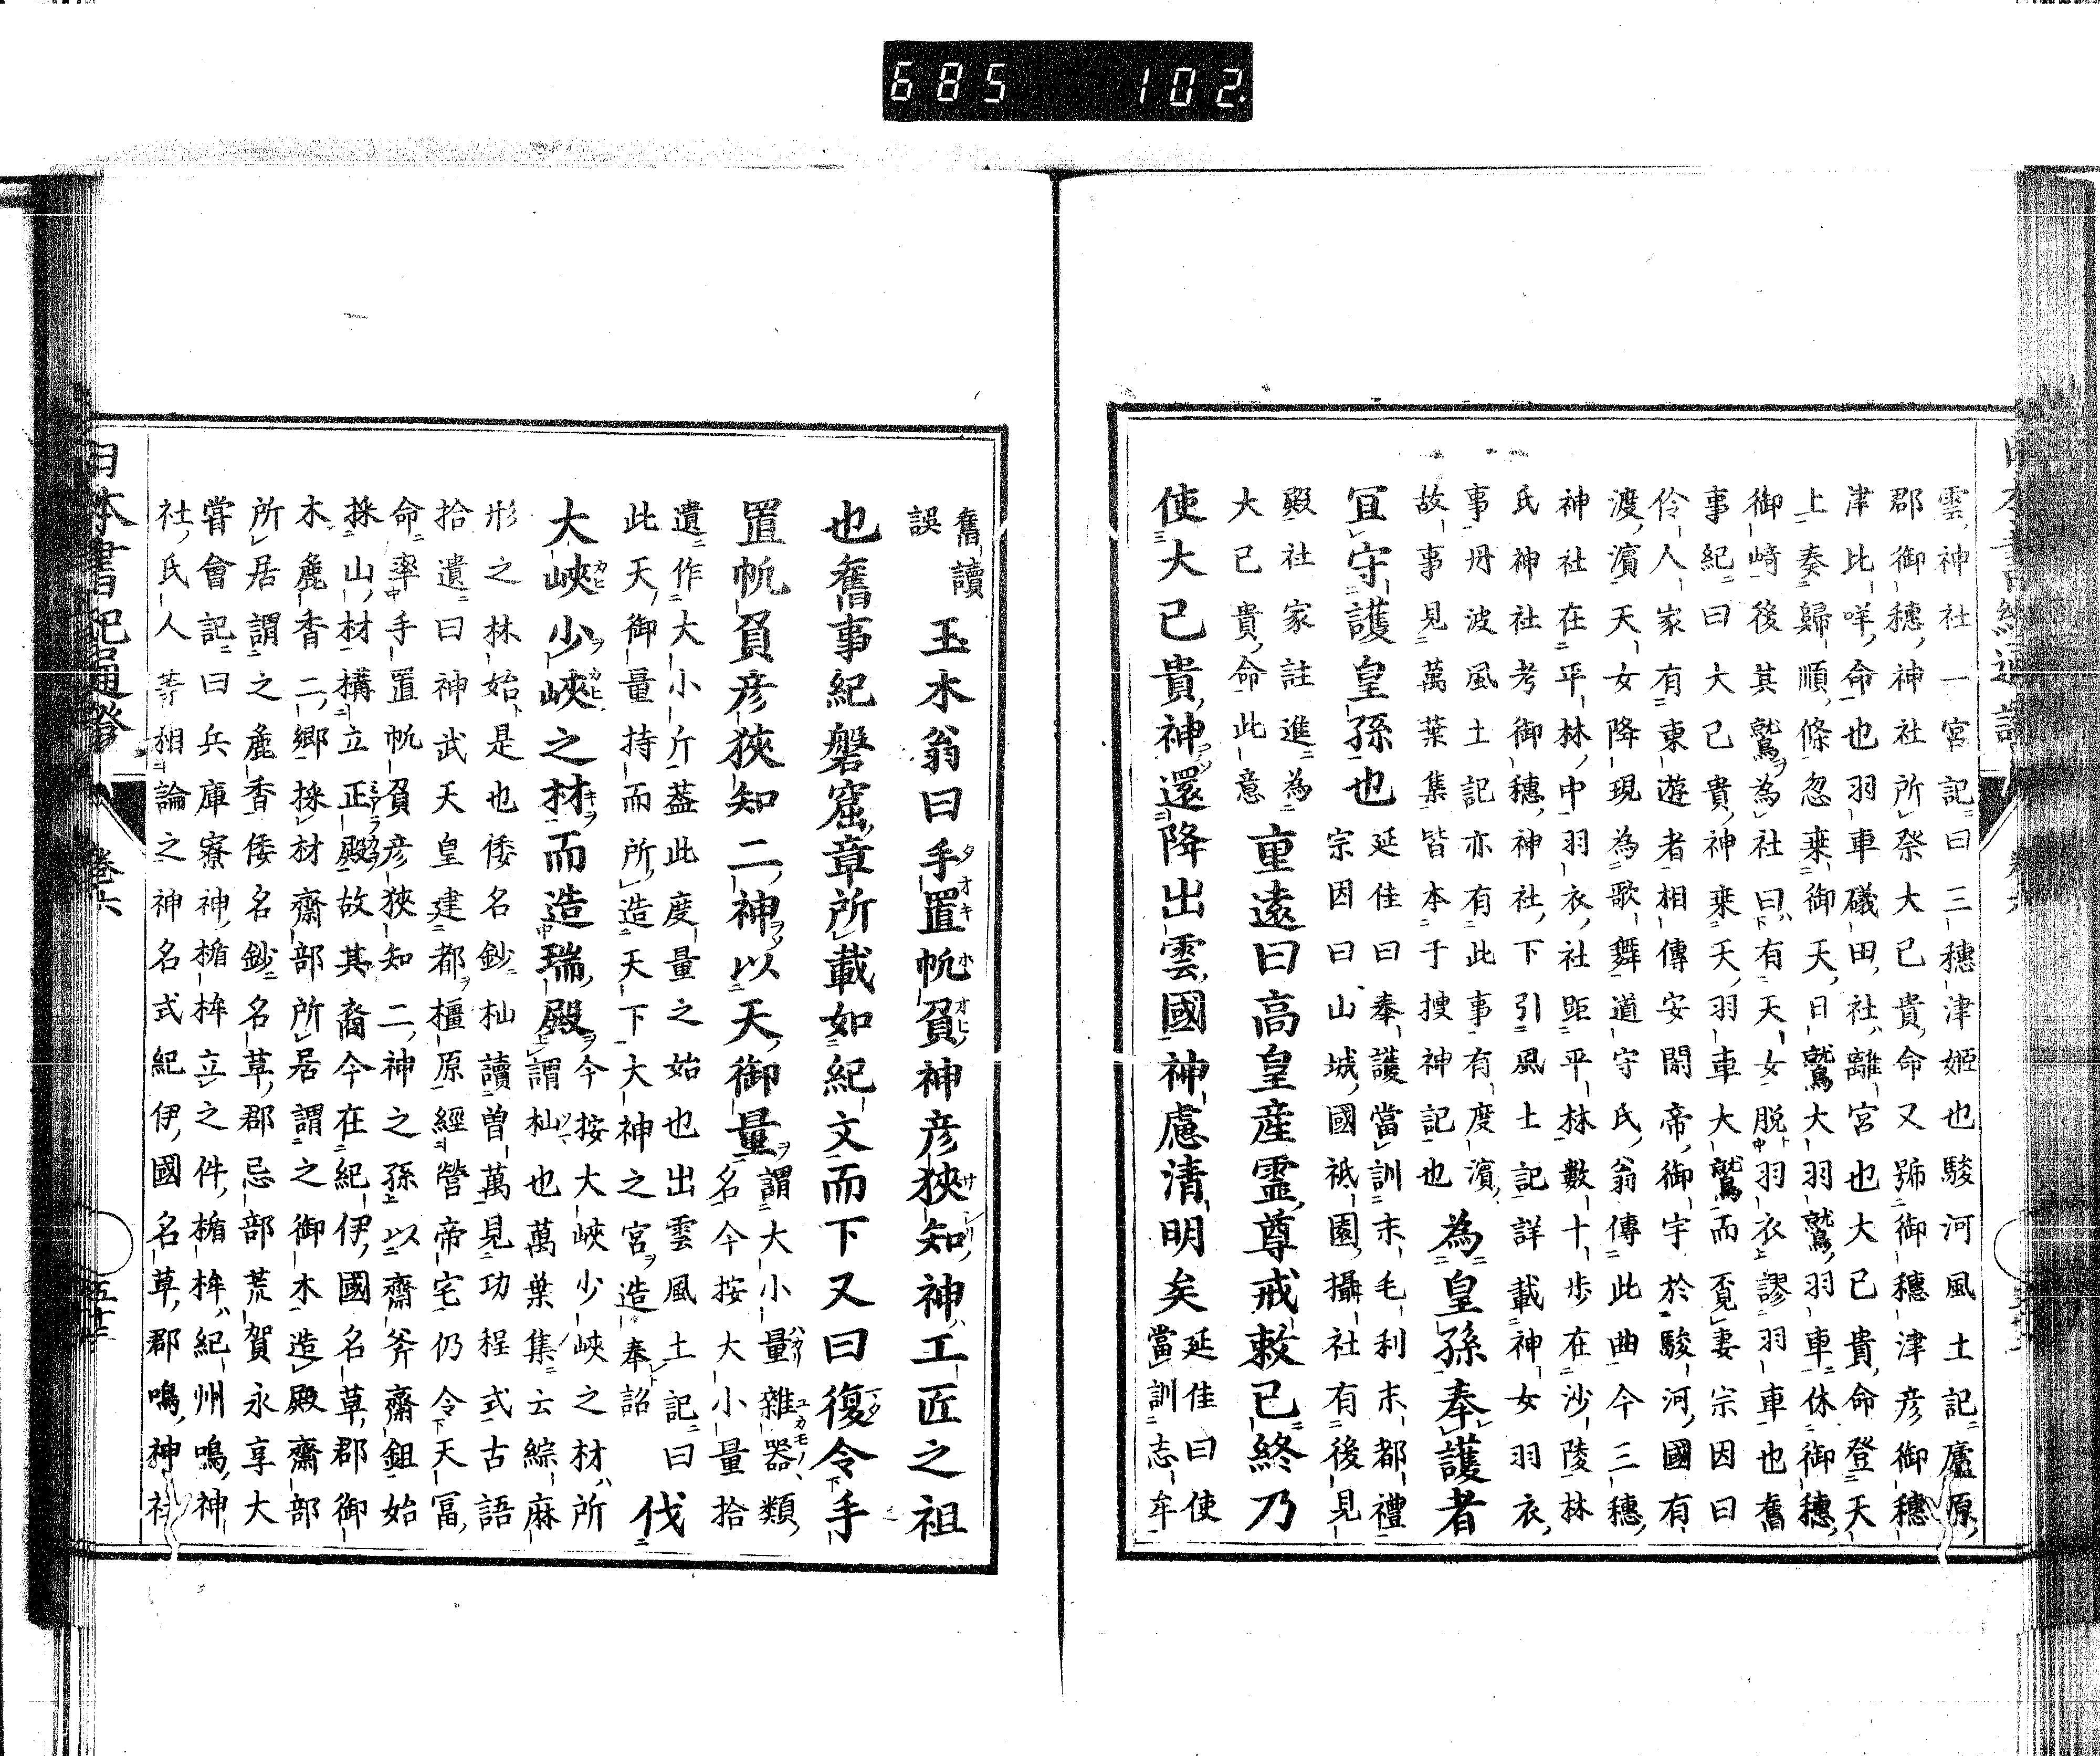 685 102.
雲神社一宮記曰三穗津姬也駿河風土記廬原
郡御穗神社所祭大已貴命又號御穗津彦御穗
津比咩命也羽車磯田社離宮也大已貴命登天
上奏歸順條忽乗御天日鷲大羽鷲羽車休御穗
御﨑後其鷲為社曰有天女脱羽衣謬羽車也舊
事紀曰大已貴神乗天羽車大鷲而覓妻宗因曰
伶人家有東遊者相傳安閑帝御宇於駿河國有
渡濵天女降現為歌舞道守氏翁傳此曲今三穗
神社在平林中羽衣社距平林數十歩在沙陵林
氏神社考御穗神社下引風土記詳載神女羽衣
事丹波風土記亦有此事有度濵
故事見萬葉集皆本于搜神記也
為皇孫奉護者
宜守護皇孫也
延佳曰奉護當訓末毛利末都禮
宗因曰山城國祗園攝社有後見
殿社家註進為
大已貴命此意
重遠曰高皇産靈尊戒敕已終乃
使大已貴神還降出雲國神慮清明矣
延佳曰使
當訓志牟
舊讀
誤
玉木翁曰手置帆負神彦狹知神工匠之祖
也舊事紀磐窟章所載如紀文而下又曰復令手
置帆負彦狹知二神以天御量
謂大小量雜器類
名今按大小量拾
遺作大小斤葢此度量之始也出雲風土記曰
此天御量持而所造天下大神之宮造奉詔
伐
大峽少峽之材而造瑞殿
今按大峽少峽之材所
謂杣也萬葉集云綜麻
形之林始是也倭名鈔杣讀曽萬見功程式古語
拾遺曰神武天皇建都橿原經營帝宅仍令天冨
命率手置帆負彦狹知二神之孫以齋斧齋鉏始
採山材構立正殿故其裔今在紀伊國名草郡御
木麁香二郷採材齋部所居謂之御木造殿齋部
所居謂之麁香倭名鈔名草郡忌部荒賀永享大
嘗會記曰兵庫寮神楯桙立之件楯桙紀州鳴神
社氏人等相論之神名式紀伊國名草郡鳴神社
日本書紀通證
卷六
五十三